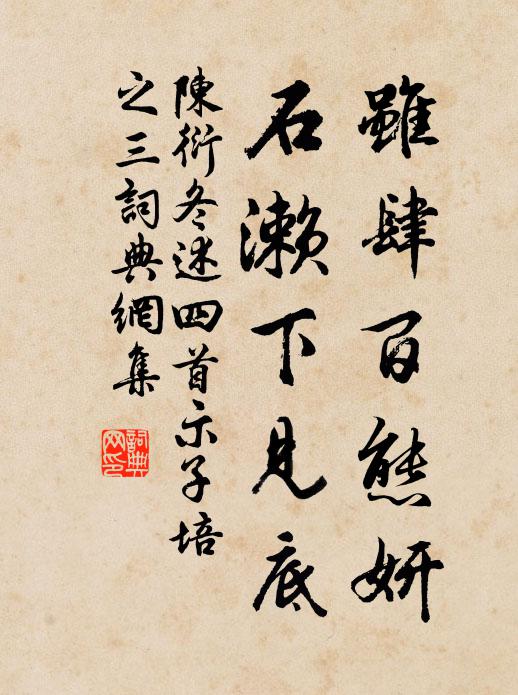 雖肆百態妍
石濑下見底
陳衍冬述四首示子培
之三詞典網集
詞典网印